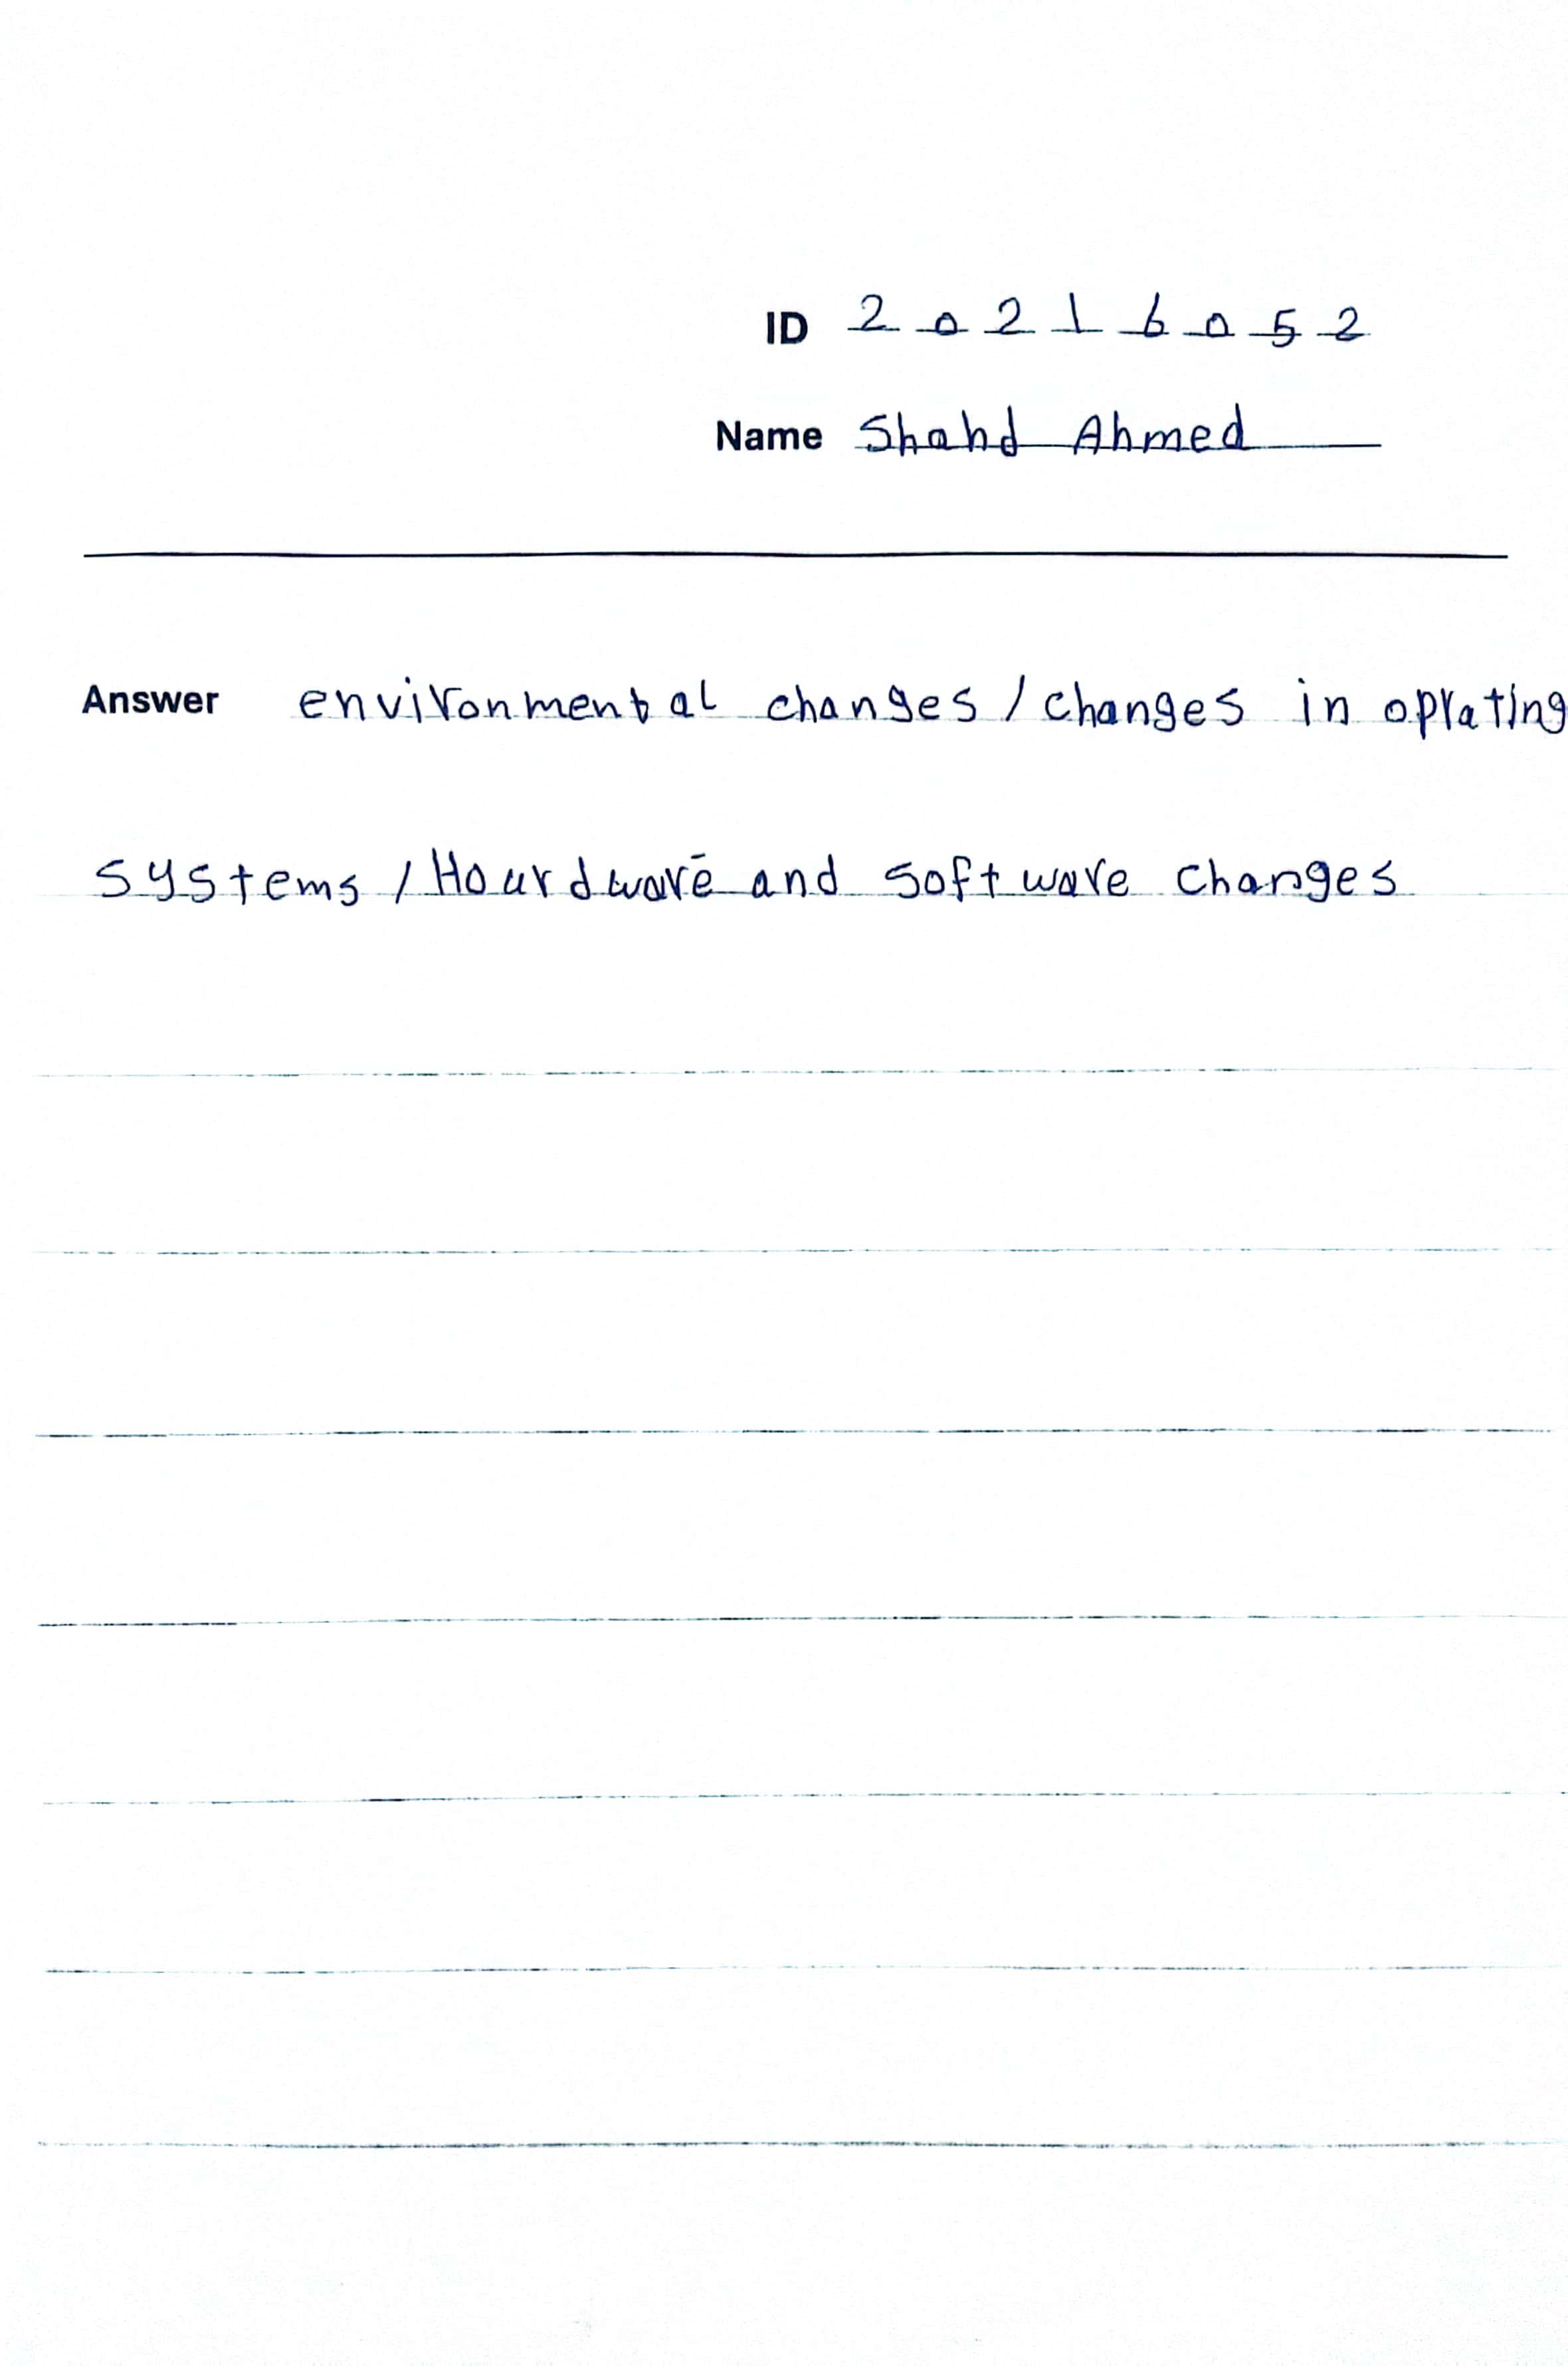 ID 20216052
Name Shahd Ahmed
Answer environmental changes / changes in oprating
systems / Hourdware and software changes